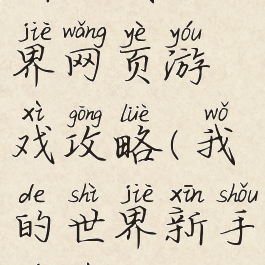 jiè wǎng yè yóu
界网页游
xì gōng lüè wǒ
戏攻略(我
de shì jiè xīn shǒu
的世界新手